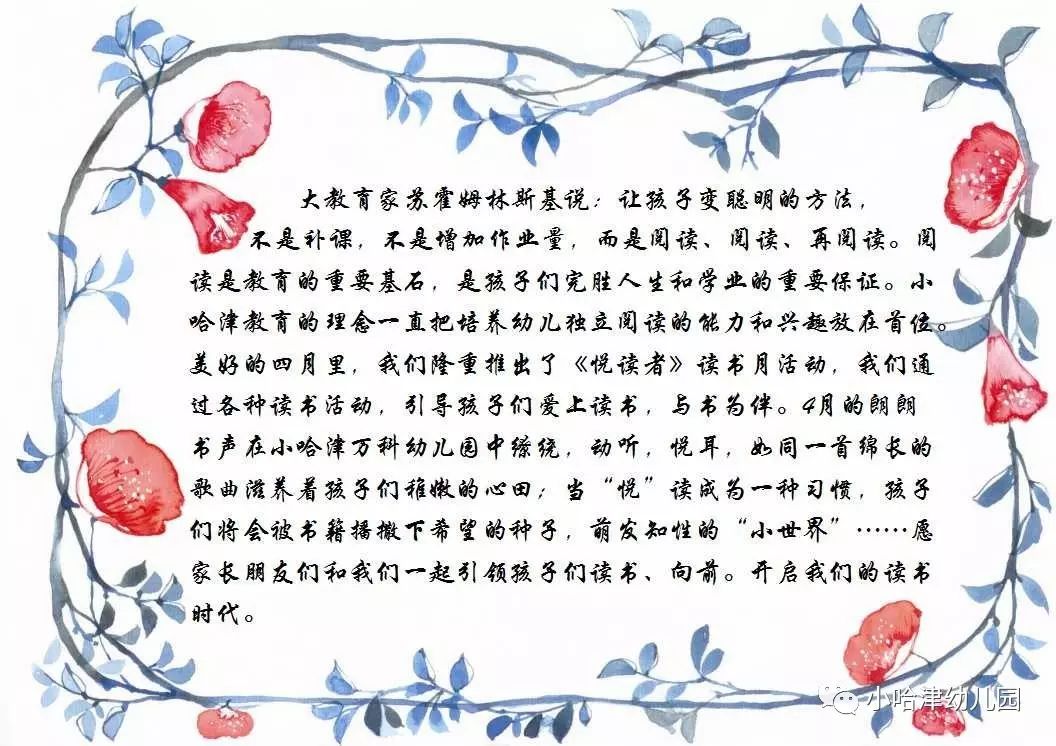 大教育家苏霍姆林斯基说：让孩子变聪明的方法，
不是补课，不是增加作业量，而是阅读、阅读、再阅读。阅
读是教育的重要基石，是孩子们完胜人生和学业的重要保证。小
哈津教育的理念一直把培养幼儿独立阅读的能力和兴趣放在首位。
美好的四月里，我们隆重推出了《悦读者》读书月活动，我们通
过各种读书活动，引导孩子们爱上读书，与书为伴。4月的朗朗
书声在小哈津万科幼儿园中缭绕，动听，悦耳，如同一首绵长的
歌曲滋养着孩子们稚嫩的心田；当“悦”读成为一种习惯，孩子
们将会被书籍播撒下希望的种子，萌发知性的“小世界”……愿
家长朋友们和我们一起引领孩子们读书、向前。开启我们的读书
时代。
小哈津幼儿园